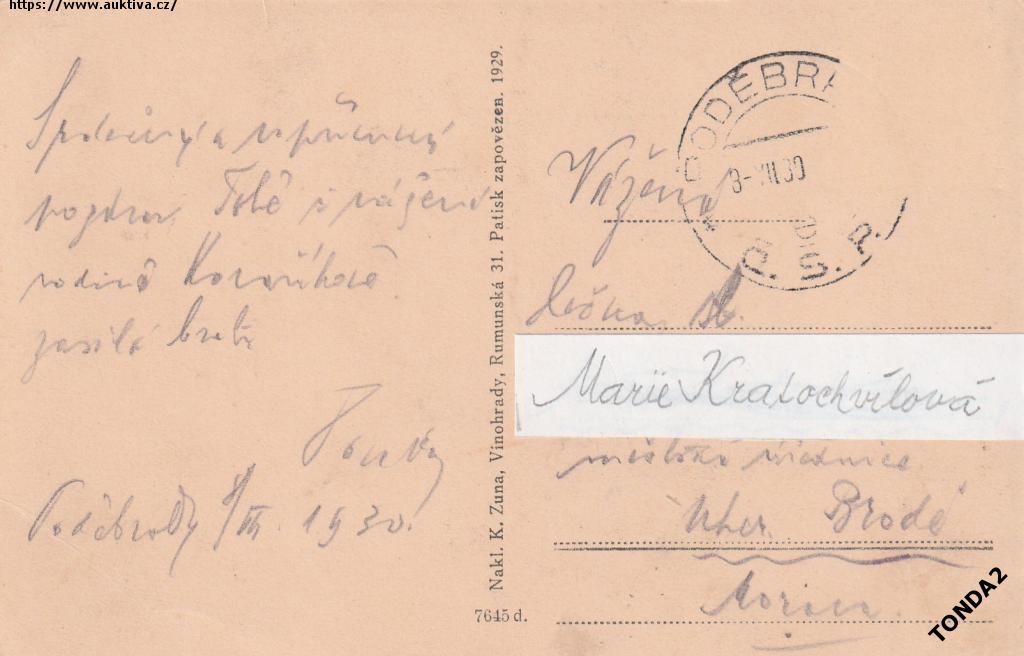 https://www.auktiva.cz/
Srdečný a upřímný
pozdrav Tobě i vážené
rodině
zasílá
Poděbrady 8/XII. 1930.
Nakl. K. Zuna, Vinohrady, Rumunská 31. Patisk zapovězen. 1929.
7645 d.
PODĚBRA
8-XII.30
Č. S. R.
Vážená
slečna
Marie Kratochvílová
městská úřednice
Uher. Brodě
Morava.
TONDA2